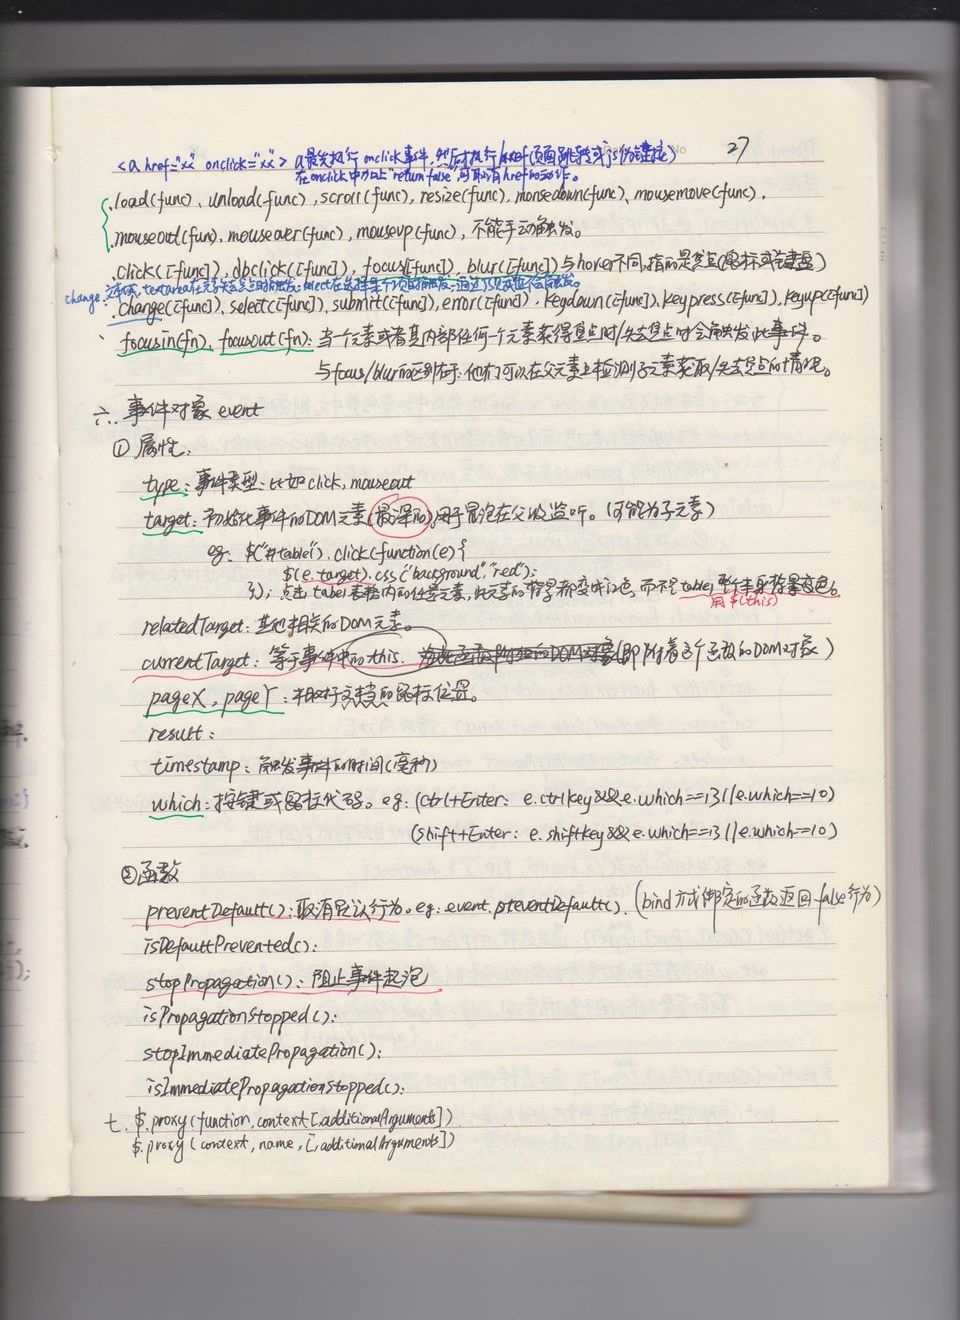 27
<a href="xx" onclick="xx"> a最先执行onclick事件,然后才执行href(页面跳转或js伪链接)
在onclick中加上"return false"可取消href的动作。
.load(func)、unload(func),scroll(func),resize(func),mousedown(func)、mousemove(func).
.mouseout(fun).mouseover(func),mouseup(func),不能手动触发。
.click([func]),dbclick([func]),focus([func]),blur([func])与hover不同,指的是焦点(鼠标或键盘)
change:文本域,textarea在元素失去焦点时触发,select在选择某个项时触发,通过JS赋值不会触发。
.change([func]),select([func]),submit([func]),error([func]),kegdown([func]),keypress([func]),keyup([func])
、focusin(fn)、focusout(fn):当一个元素或者其内部任何一个元素获得焦点时/失去焦点时会触发此事件。
与focus/blur的区别在于:他们可以在父元素上检测子元素获取/失去焦点的情况。
六、事件对象 event
①属性:
type:事件类型:比如click,mouseout
target:初始化事件的DOM元素(最深的)用于冒泡在父级监听。(可能为子元素)
eg: $("#table1").click(function(e){
$(e.target).css("background","red");
});点击table1表格内的任意元素,此元素的背景都变成红色,而不是table1整个本身背景变色。
用$(this)
relatedTarget:其他相关的DOM元素。
currentTarget:等于事件中的this. (即附着这个函数的DOM对象)
pageX,pageY:相对于文档的鼠标位置。
result:
timestamp:触发事件的时间(毫秒)
which:按键或鼠标代码。eg:(Ctrl+Enter: e.ctrlkey&&e.which==13||e.which==10)
(shift+Enter: e.shiftkey&&e.which==13||e.which==10)
②函数
preventDefault():取消默认行为。eg:event.preventDefault().(bind方式绑定的函数返回false行为)
isDefaultPrevented():
stopPropagation():阻止事件起泡
isPropagationStopped():
stopImmediatePropagation():
isImmediatePropagationStopped():
七.$.proxy(function,context[,additionalArguments])
$.proxy(context,name,[,additionalArguments])